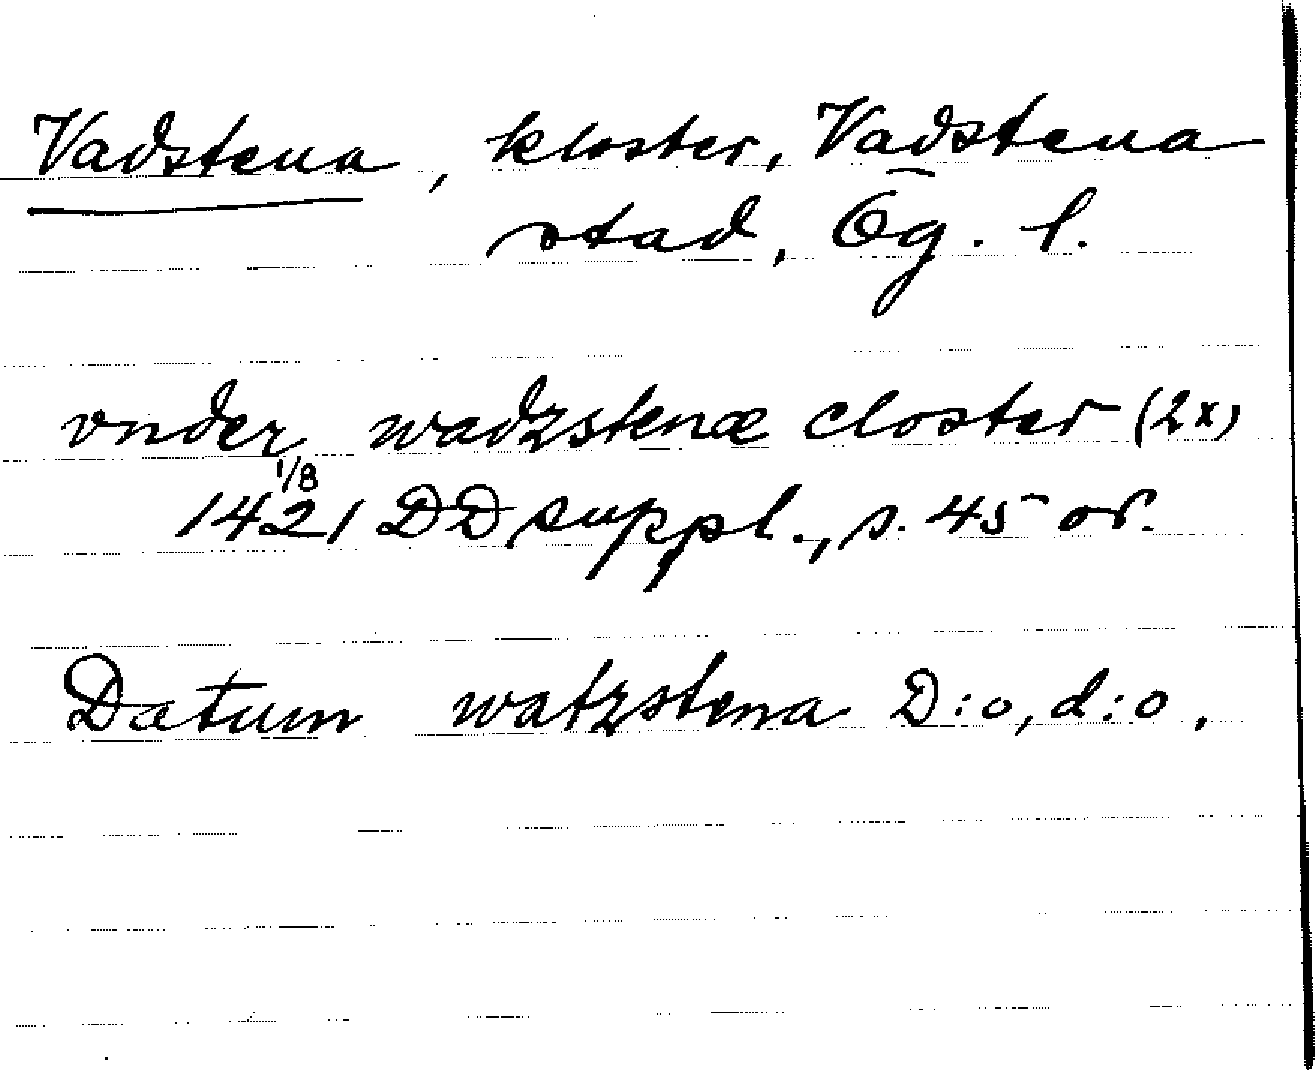 Vadstena, kloster, Vadstena
stad, Ög. l.
vnder wadzstenæ closter (2x)
1/8
1421 DD suppl., s. 45 or.
Datum watzstena D:o, d:o.